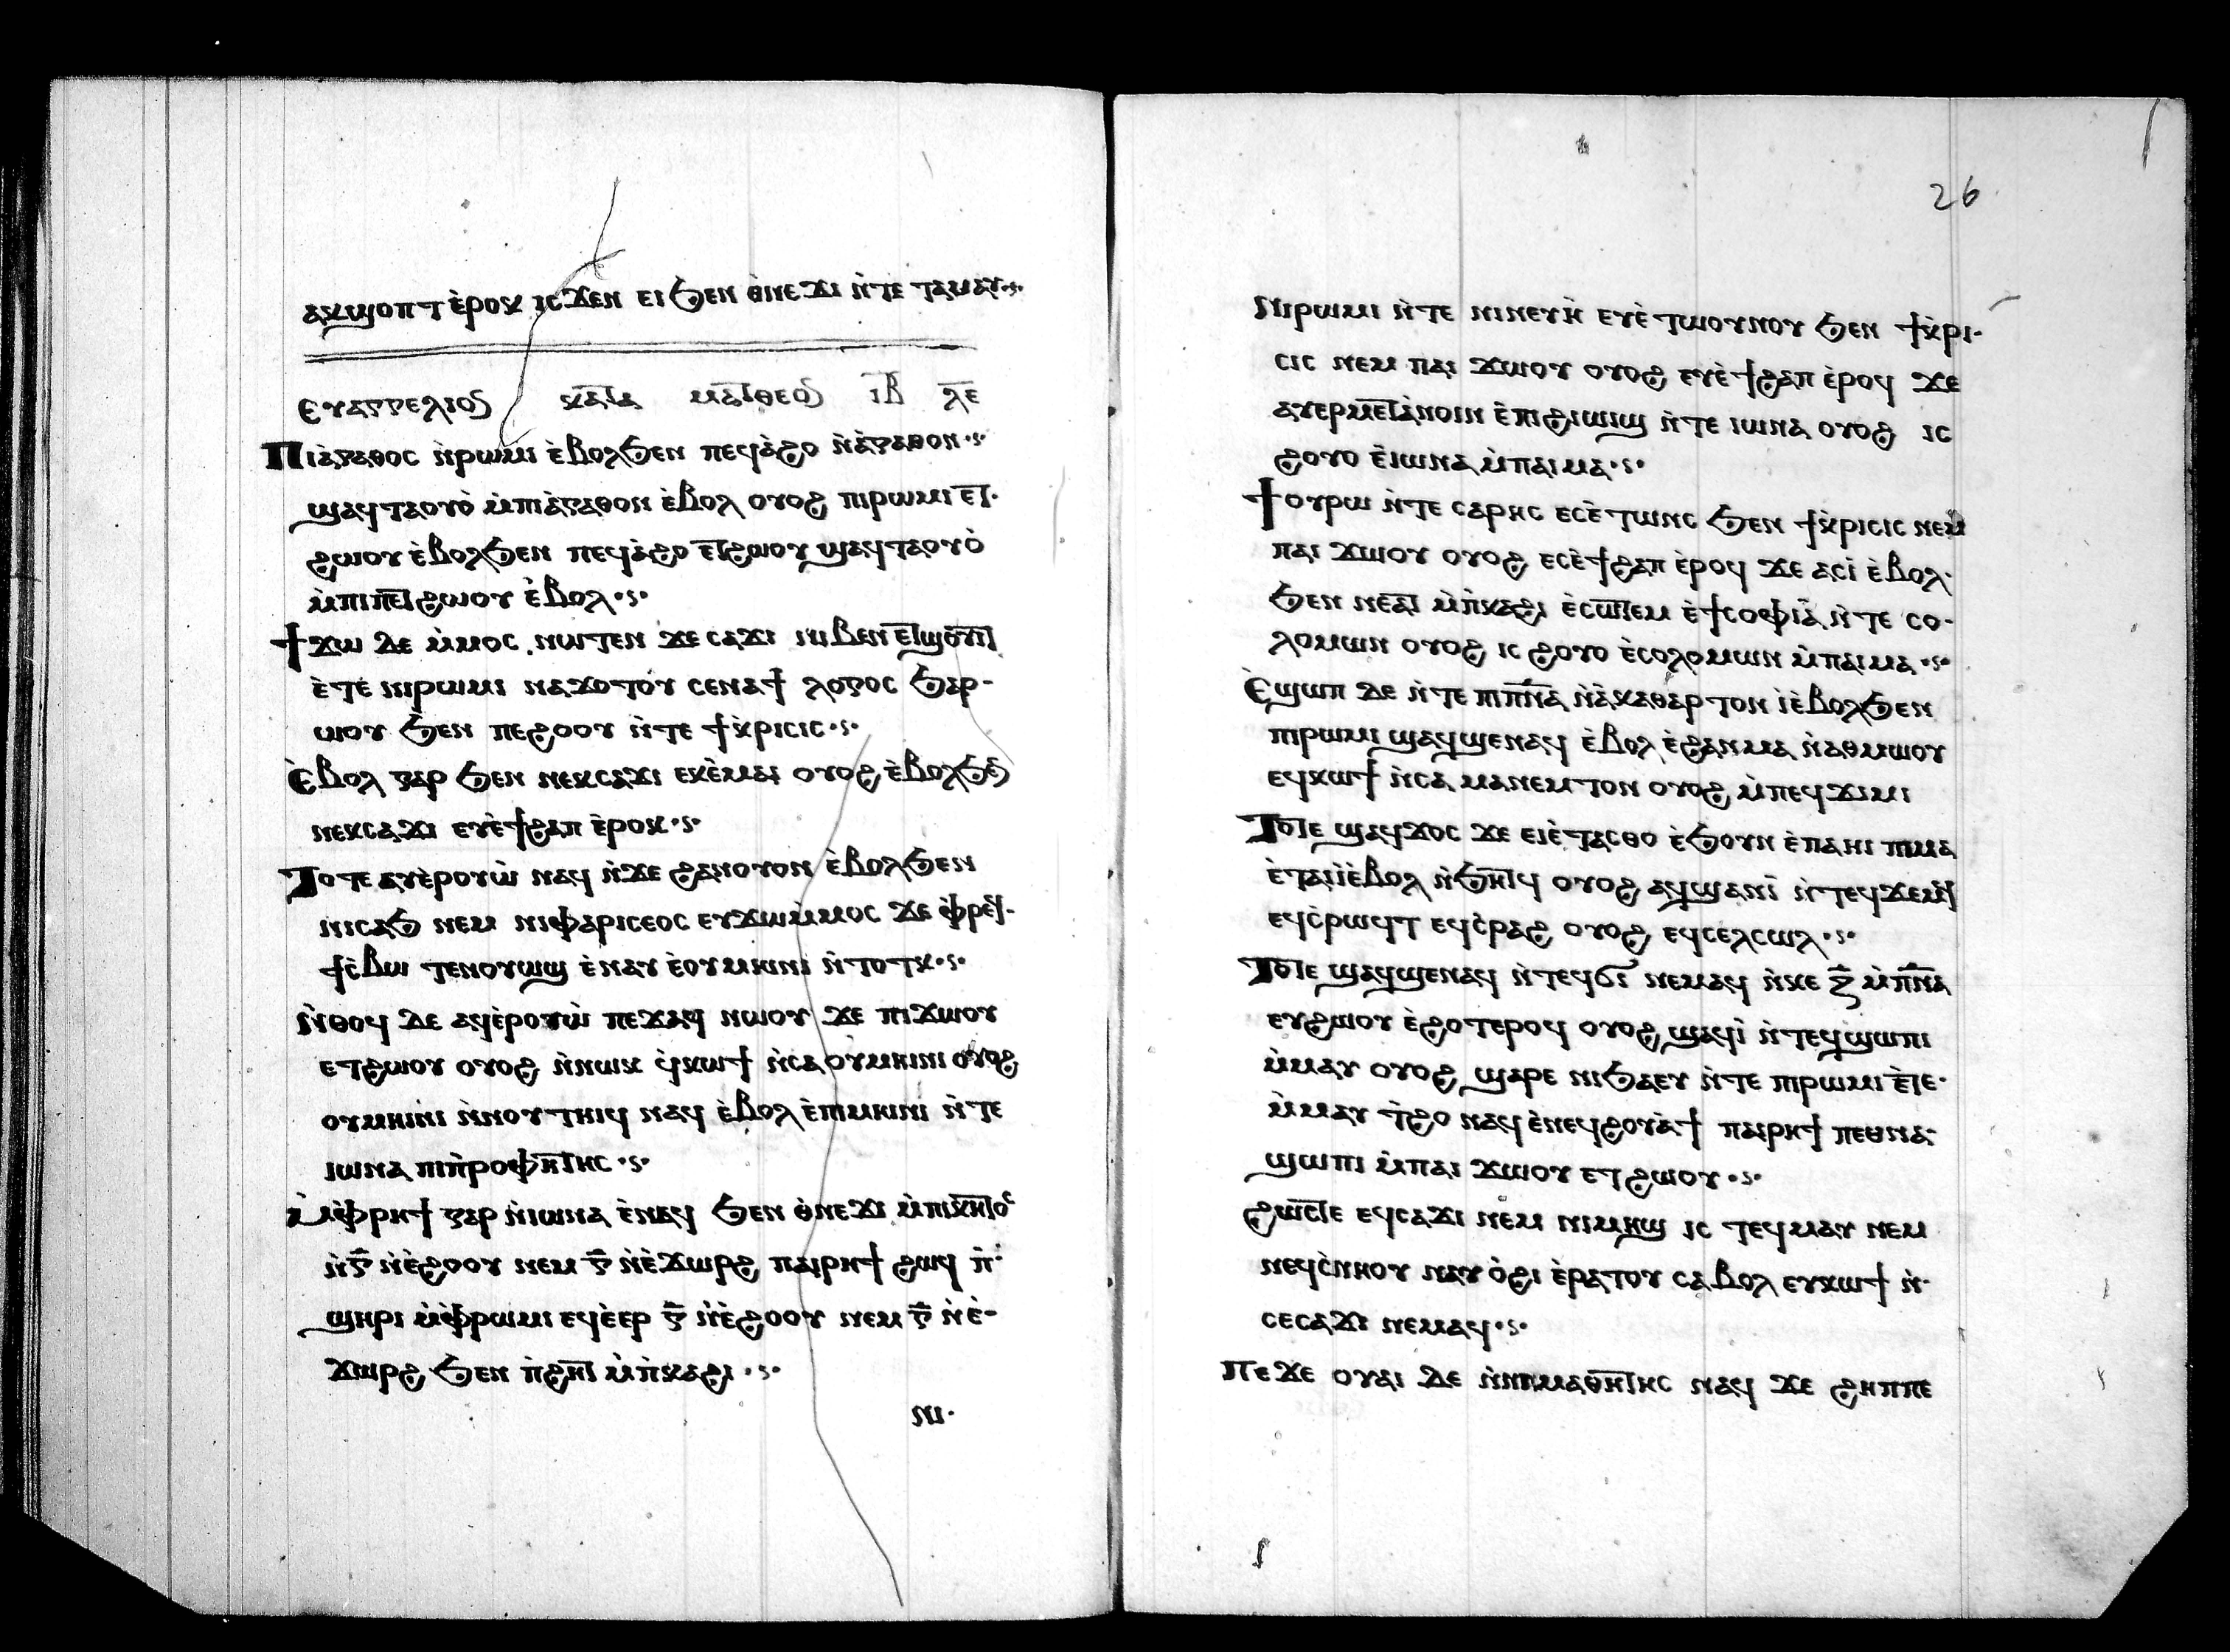 ⲁⲕϣⲟⲡⲧ ⲉ̀ⲣⲟⲕ ⲓⲥϫⲉⲛ ⲉⲓϧⲉⲛ ⲑ̀ⲛⲉϫⲓ ⲛ̀ⲧⲉ ⲧⲁⲙⲁⲩ
ⲉⲩⲁⲅⲅⲉⲗⲓⲟ ⲕⲁⲧⲁ ⲙⲁⲧⲑⲉⲟ ⲓ̅ⲃ̅ ⲗ̅ⲉ̅
Ⲡⲓⲁ̀ⲅⲁⲑⲟⲥ ⲛ̀ⲣⲱⲙⲓ ⲉ̀ⲃⲟⲗϧⲉⲛ ⲡⲉϥⲁ̀ϩⲟ ⲛ̀ⲁ̀ⲅⲁⲑⲟⲛ·ⲋ·
ϣⲁϥⲧⲁⲟⲩⲟ̀ ⲙ̀ⲡⲓⲁ̀ⲅⲁⲑⲟⲛ ⲉ̀ⲃⲟⲗ ⲟⲩⲟϩ ⲡⲓⲣⲱⲙⲓ ⲉⲧ·
ϩⲱⲟⲩ ⲉ̀ⲃⲟⲗϧⲉⲛ ⲡⲉϥⲁ̀ϩⲟ ⲉⲧϩⲱⲟⲩ ϣⲁϥⲧⲁⲟⲩⲟ̀
ⲙ̀ⲡⲓⲡⲉⲧϩⲱⲟⲩ ⲉ̀ⲃⲟⲗ·ⲋ·
Ϯϫⲱ ⲇⲉ ⲙ̀ⲙⲟⲥ ⲛⲱⲧⲉⲛ ϫⲉ ⲥⲁϫⲓ ⲛⲓⲃⲉⲛ ⲉⲧϣⲟⲩⲓⲧ
ⲉ̀ⲧⲉ ⲛⲓⲣⲱⲙⲓ ⲛⲁϫⲟⲧⲟⲩ ⲥⲉⲛⲁϯ ⲗⲟⲅⲟⲥ ϧⲁⲣ-
ⲱⲟⲩ ϧⲉⲛ ⲡⲉϩⲟⲟⲩ ⲛ̀ⲧⲉ ϯⲕ̀ⲣⲓⲥⲓⲥ·ⲋ·
Ⲉ̀ⲃⲟⲗ ⲅⲁⲣ ϧⲉⲛ ⲛⲉⲕⲥⲁϫⲓ ⲉⲕⲉ̀ⲙⲁⲓ ⲟⲩⲟϩ ⲉ̀ⲃⲟⲗϧⲉ
ⲛⲉⲕⲥⲁϫⲓ ⲉⲩⲉ̀ϯϩⲁⲡ ⲉ̀ⲣⲟⲕ·ⲋ·
Ⲧⲟⲧⲉ ⲁⲩⲉ̀ⲣⲟⲩⲱ̀ ⲛⲁϥ ⲛ̀ϫⲉ ϩⲁⲛⲟⲩⲟⲛ ⲉ̀ⲃⲟⲗϧⲉⲛ
ⲛⲓⲥⲁϧ ⲛⲉⲙ ⲛⲓⲫⲁⲣⲓⲥⲉⲟⲥ ⲉⲩϫⲱⲙ̀ⲙⲟⲥ ϫⲉ ⲫ̀ⲣⲉϥ·
ϯⲥ̀ⲃⲱ ⲧⲉⲛⲟⲩⲱϣ ⲉ̀ⲛⲁⲩ ⲉ̀ⲟⲩⲙⲏⲓⲛⲓ ⲛ̀ⲧⲟⲧⲕ·ⲋ·
Ⲛ̀ⲑⲟϥ ⲇⲉ ⲁϥⲉ̀ⲣⲟⲩⲱ̀ ⲡⲉϫⲁϥ ⲛⲱⲟⲩ ϫⲉ ⲡⲓϫⲱⲟⲩ
ⲉⲧϩⲱⲟⲩ ⲟⲩⲟϩ ⲛ̀ⲛⲱⲓⲕ ϥ̀ⲕⲱϯ ⲛ̀ⲥⲁ ⲟⲩⲙⲏⲓⲛⲓ ⲟⲩⲟϩ
ⲟⲩⲙⲏⲓⲛⲓ ⲛ̀ⲛⲟⲩⲧⲏⲓϥ ⲛⲁϥ ⲉ̀ⲃⲟⲗ ⲉ̀ⲡⲓⲙⲏⲓⲛⲓ ⲛ̀ⲧⲉ
ⲓⲱⲛⲁ ⲡⲓⲡ̀ⲣⲟⲫⲏⲧⲏⲥ·ⲋ·
Ⲙ̀ⲫ̀ⲣⲏϯ ⲅⲁⲣ ⲛ̀ⲓⲱⲛⲁ ⲉ̀ⲛⲁϥ ϧⲉⲛ ⲑ̀ⲛⲉϫⲓ ⲙ̀ⲡⲓⲕⲏⲧⲟⲥ
ⲛ̀ⲅ̅ ⲛ̀ⲉ̀ϩⲟⲟⲩ ⲛⲉⲙ ⲅ̅ ⲛ̀ⲉ̀ϫⲱⲣϩ ⲡⲁⲓⲣⲏϯ ϩⲱϥ ⲡ̀·
ϣⲏⲣⲓ ⲙ̀ⲫ̀ⲣⲱⲙⲓ ⲉϥⲉ̀ⲉⲣ ⲅ̅ ⲛ̀ⲉ̀ϩⲟⲟⲩ ⲛⲉⲙ ⲅ̅ ⲛ̀ⲉ̀-
ϫⲱⲣϩ ϧⲉⲛ ⲡ̀ϩⲏⲧ ⲙ̀ⲡ̀ⲕⲁϩⲓ·ⲋ·
ⲛⲓ·
26
Ⲛⲓⲣⲱⲙⲓ ⲛ̀ⲧⲉ ⲛⲓⲛⲉⲩⲏ̀ ⲉⲩⲉ̀ⲧⲱⲟⲩⲛⲟⲩ ϧⲉⲛ ϯⲕ̀ⲣⲓ-
ⲥⲓⲥ ⲛⲉⲙ ⲡⲁⲓ ϫⲱⲟⲩ ⲟⲩⲟϩ ⲉⲩⲉ̀ϯϩⲁⲡ ⲉ̀ⲣⲟϥ ϫⲉ
ⲁⲩⲉⲣⲙⲉⲧⲁ̀ⲛⲟⲓⲛ ⲉ̀ⲡⲓϩⲓⲱⲓϣ ⲛ̀ⲧⲉ ⲓⲱⲛⲁ ⲟⲩⲟϩ ⲓⲥ
ϩⲟⲩⲟ ⲉ̀ⲓⲱⲛⲁ ⲙ̀ⲡⲁⲓⲙⲁ·ⲋ·
Ϯⲟⲩⲣⲱ ⲛ̀ⲧⲉ ⲥⲁⲣⲏⲥ ⲉⲥⲉ̀ⲧⲱⲛⲥ ϧⲉⲛ ϯⲕ̀ⲣⲓⲥⲓⲥ ⲛⲉⲙ
ⲡⲁⲓ ϫⲱⲟⲩ ⲟⲩⲟϩ ⲉⲥⲉ̀ϯϩⲁⲡ ⲉ̀ⲣⲟϥ ϫⲉ ⲁⲥⲓ̀ ⲉ̀ⲃⲟⲗ·
ϧⲉⲛ ⲛⲉⲁⲧ ⲙ̀ⲡ̀ⲕⲁϩⲓ ⲉ̀ⲥⲱⲧⲉⲙ ⲉ̀ϯⲥⲟⲫⲓⲁ̀ ⲛ̀ⲧⲉ ⲥⲟ-
ⲗⲟⲙⲱⲛ ⲟⲩⲟϩ ⲓⲥ ϩⲟⲩⲟ ⲉ̀ⲥⲟⲗⲟⲙⲱⲛ ⲙ̀ⲡⲁⲓⲙⲁ·ⲋ·
Ⲉϣⲱⲡ ⲇⲉ ⲛ̀ⲧⲉ ⲡⲓⲡ̅ⲛ̅ⲁ̅ ⲛ̀ⲁ̀ⲕⲁⲑⲁⲣⲧⲟⲛ ⲓ̀ⲉ̀ⲃⲟⲗϧⲉⲛ
ⲡⲓⲣⲱⲙⲓ ϣⲁϥϣⲉⲛⲁϥ ⲉ̀ⲃⲟⲗ ⲉ̀ϩⲁⲛⲙⲁ ⲛ̀ⲁⲑⲙⲱⲟⲩ
ⲉϥⲕⲱϯ ⲛ̀ⲥⲁ ⲙⲁⲛⲉⲙⲧⲟⲛ ⲟⲩⲟϩ ⲙ̀ⲡⲉϥϫⲓⲙⲓ
Ⲧⲟⲧⲉ ϣⲁϥϫⲟⲥ ϫⲉ ⲉⲓⲉ̀ⲧⲁⲥⲑⲟ ⲉ̀ϧⲟⲩⲛ ⲉ̀ⲡⲁⲏⲓ ⲡⲓⲙⲁ
ⲉ̀ⲧⲁⲓⲓ̀ⲉ̀ⲃⲟⲗ ⲛ̀ϧⲏⲧϥ ⲟⲩⲟϩ ⲁϥϣⲁⲛⲓ̀ ⲛ̀ⲧⲉϥϫⲉⲙϥ
ⲉϥⲥ̀ⲣⲱϥⲧ ⲉϥⲥ̀ⲣⲁϩ ⲟⲩⲟϩ ⲉϥⲥⲉⲗⲥⲱⲗ·ⲋ·
Ⲧⲟⲧⲉ ϣⲁϥϣⲉⲛⲁϥ ⲛ̀ⲧⲉϥϭⲓ ⲛⲉⲙⲁϥ ⲛ̀ⲕⲉ ⲍ̅ ⲙ̀ⲡ̅ⲛ̅ⲁ̅
ⲉⲩϩⲱⲟⲩ ⲉ̀ϩⲟⲧⲉⲣⲟϥ ⲟⲩⲟϩ ϣⲁϥⲓ̀ ⲛ̀ⲧⲉϥϣⲱⲡⲓ
ⲙ̀ⲙⲁⲩ ⲟⲩⲟϩ ϣⲁⲣⲉ ⲛⲓϧⲁⲉⲩ ⲛ̀ⲧⲉ ⲡⲓⲣⲱⲙⲓ ⲉ̀ⲧⲉ·
ⲙ̀ⲙⲁⲩ ⲧ̀ϩⲟ ⲛⲁϥ ⲉ̀ⲛⲉϥϩⲟⲩⲁ̀ϯ ⲡⲁⲓⲣⲏϯ ⲡⲉⲑⲛⲁ-
ϣⲱⲡⲓ ⲙ̀ⲡⲁⲓ ϫⲱⲟⲩ ⲉⲧϩⲱⲟⲩ·ⲋ·
ϩⲱⲥⲧⲉ ⲉϥⲥⲁϫⲓ ⲛⲉⲙ ⲛⲓⲙⲏϣ ⲓⲥ ⲧⲉϥⲙⲁⲩ ⲛⲉⲙ
ⲛⲉϥⲥ̀ⲛⲏⲟⲩ ⲛⲁⲩ ⲟ̀ϩⲓ ⲉ̀ⲣⲁⲧⲟⲩ ⲥⲁⲃⲟⲗ ⲉⲩⲕⲱϯ ⲛ̀·
ⲥⲉⲥⲁϫⲓ ⲛⲉⲙⲁϥ·ⲋ·
Ⲡⲉϫⲉ ⲟⲩⲁⲓ ⲇⲉ ⲛ̀ⲛⲓⲙⲁⲑⲏⲧⲏⲥ ⲛⲁϥ ϫⲉ ϩⲏⲡⲡⲉ